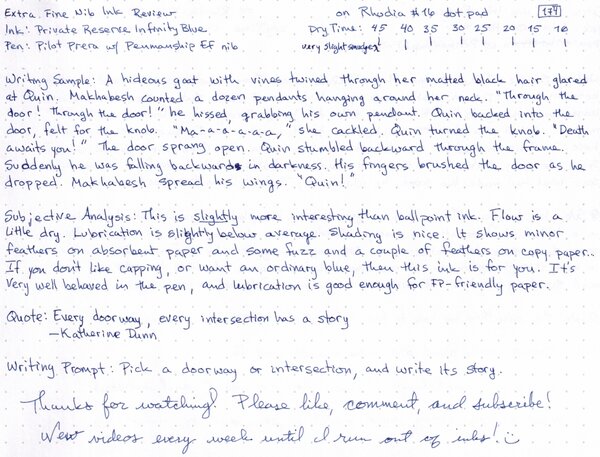 Extra Fine Nib Ink Review on Rhodia #16 dot pad 174
Ink: Private Reserve Infinity Blue Dry Time: 45 40 35 30 25 20 15 10
Pen: Pilot Prera w/ Penmanship EF nib very slight smudges
Writing Sample: A hideous goat with vines twined through her matted black hair glared
at Quin. Makhabesh counted a dozen pendants hanging around her neck. "Through the
door! Through the door!" he hissed, grabbing his own pendant. Quin backed into the
door, felt for the knob. "Ma-a-a-a-a-a," she cackled. Quin turned the knob. "Death
awaits you!" The door sprang open. Quin stumbled backward through the frame.
Suddenly he was falling backwards in darkness. His fingers brushed the door as he
dropped. Makhabesh spread his wings. "Quin!"
Subjective Analysis: This is slightly more interesting than ballpoint ink. Flow is a
little dry. Lubrication is slightly below average. Shading is nice. It shows minor
feathers on absorbent paper and some fuzz and a couple of feathers on copy paper.
If you don't like capping, or want an ordinary blue, then this ink is for you. It's
very well behaved in the pen, and lubrication is good enough for FP-friendly paper.
Quote: Every doorway, every intersection has a story
—Katherine Dunn
Writing Prompt: Pick a doorway or intersection, and write its story.
Thanks for watching! Please like, comment, and subscribe!
New videos every week until I run out of inks!